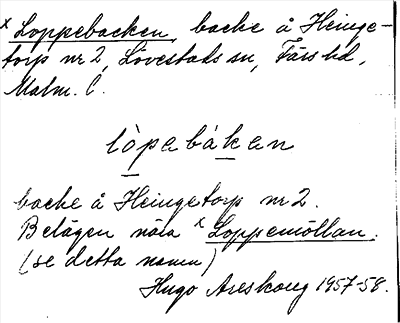 x Loppebacken, backe å Heinge-
torp nr 2, Lövestads sn, Färs hd,
Malm. l.
lòpebákan
backe å Heingetorp nr 2.
Belägen nära x Loppemöllan.
(se detta namn)
Hugo Areskoug 1957-58.